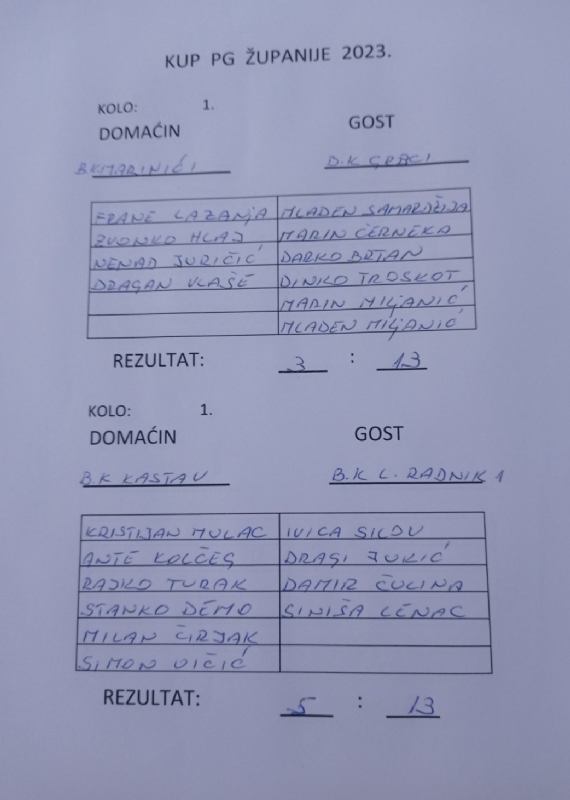 KUP PG ŽUPANIJE 2023.
KOLO: 1.
DOMAĆIN GOST
B.K MARINIĆI D.K GRBCI
FRANE LAZANJA MLADEN SAMARDŽIJA
ZVONKO HLAJ MARIN ČERNEKA
NENAD JURIČIĆ DARKO BRTAN
DRAGAN VLAŠE DINKO TROSKOT
MARIN MILJANIĆ
MLADEN MILJANIĆ
REZULTAT: 3 : 13
KOLO: 1.
DOMAĆIN GOST
B.K KASTAV B.K L. RADNIK 1
KRISTIJAN MULAC IVICA
ANTE KOLČEG DRAGI JUKIĆ
RAJKO TURAK DAMIR ČULINA
STANKO DEMO SINIŠA LENAC
MILAN ČIRJAK
SIMON VIČIĆ
REZULTAT: 5 : 13